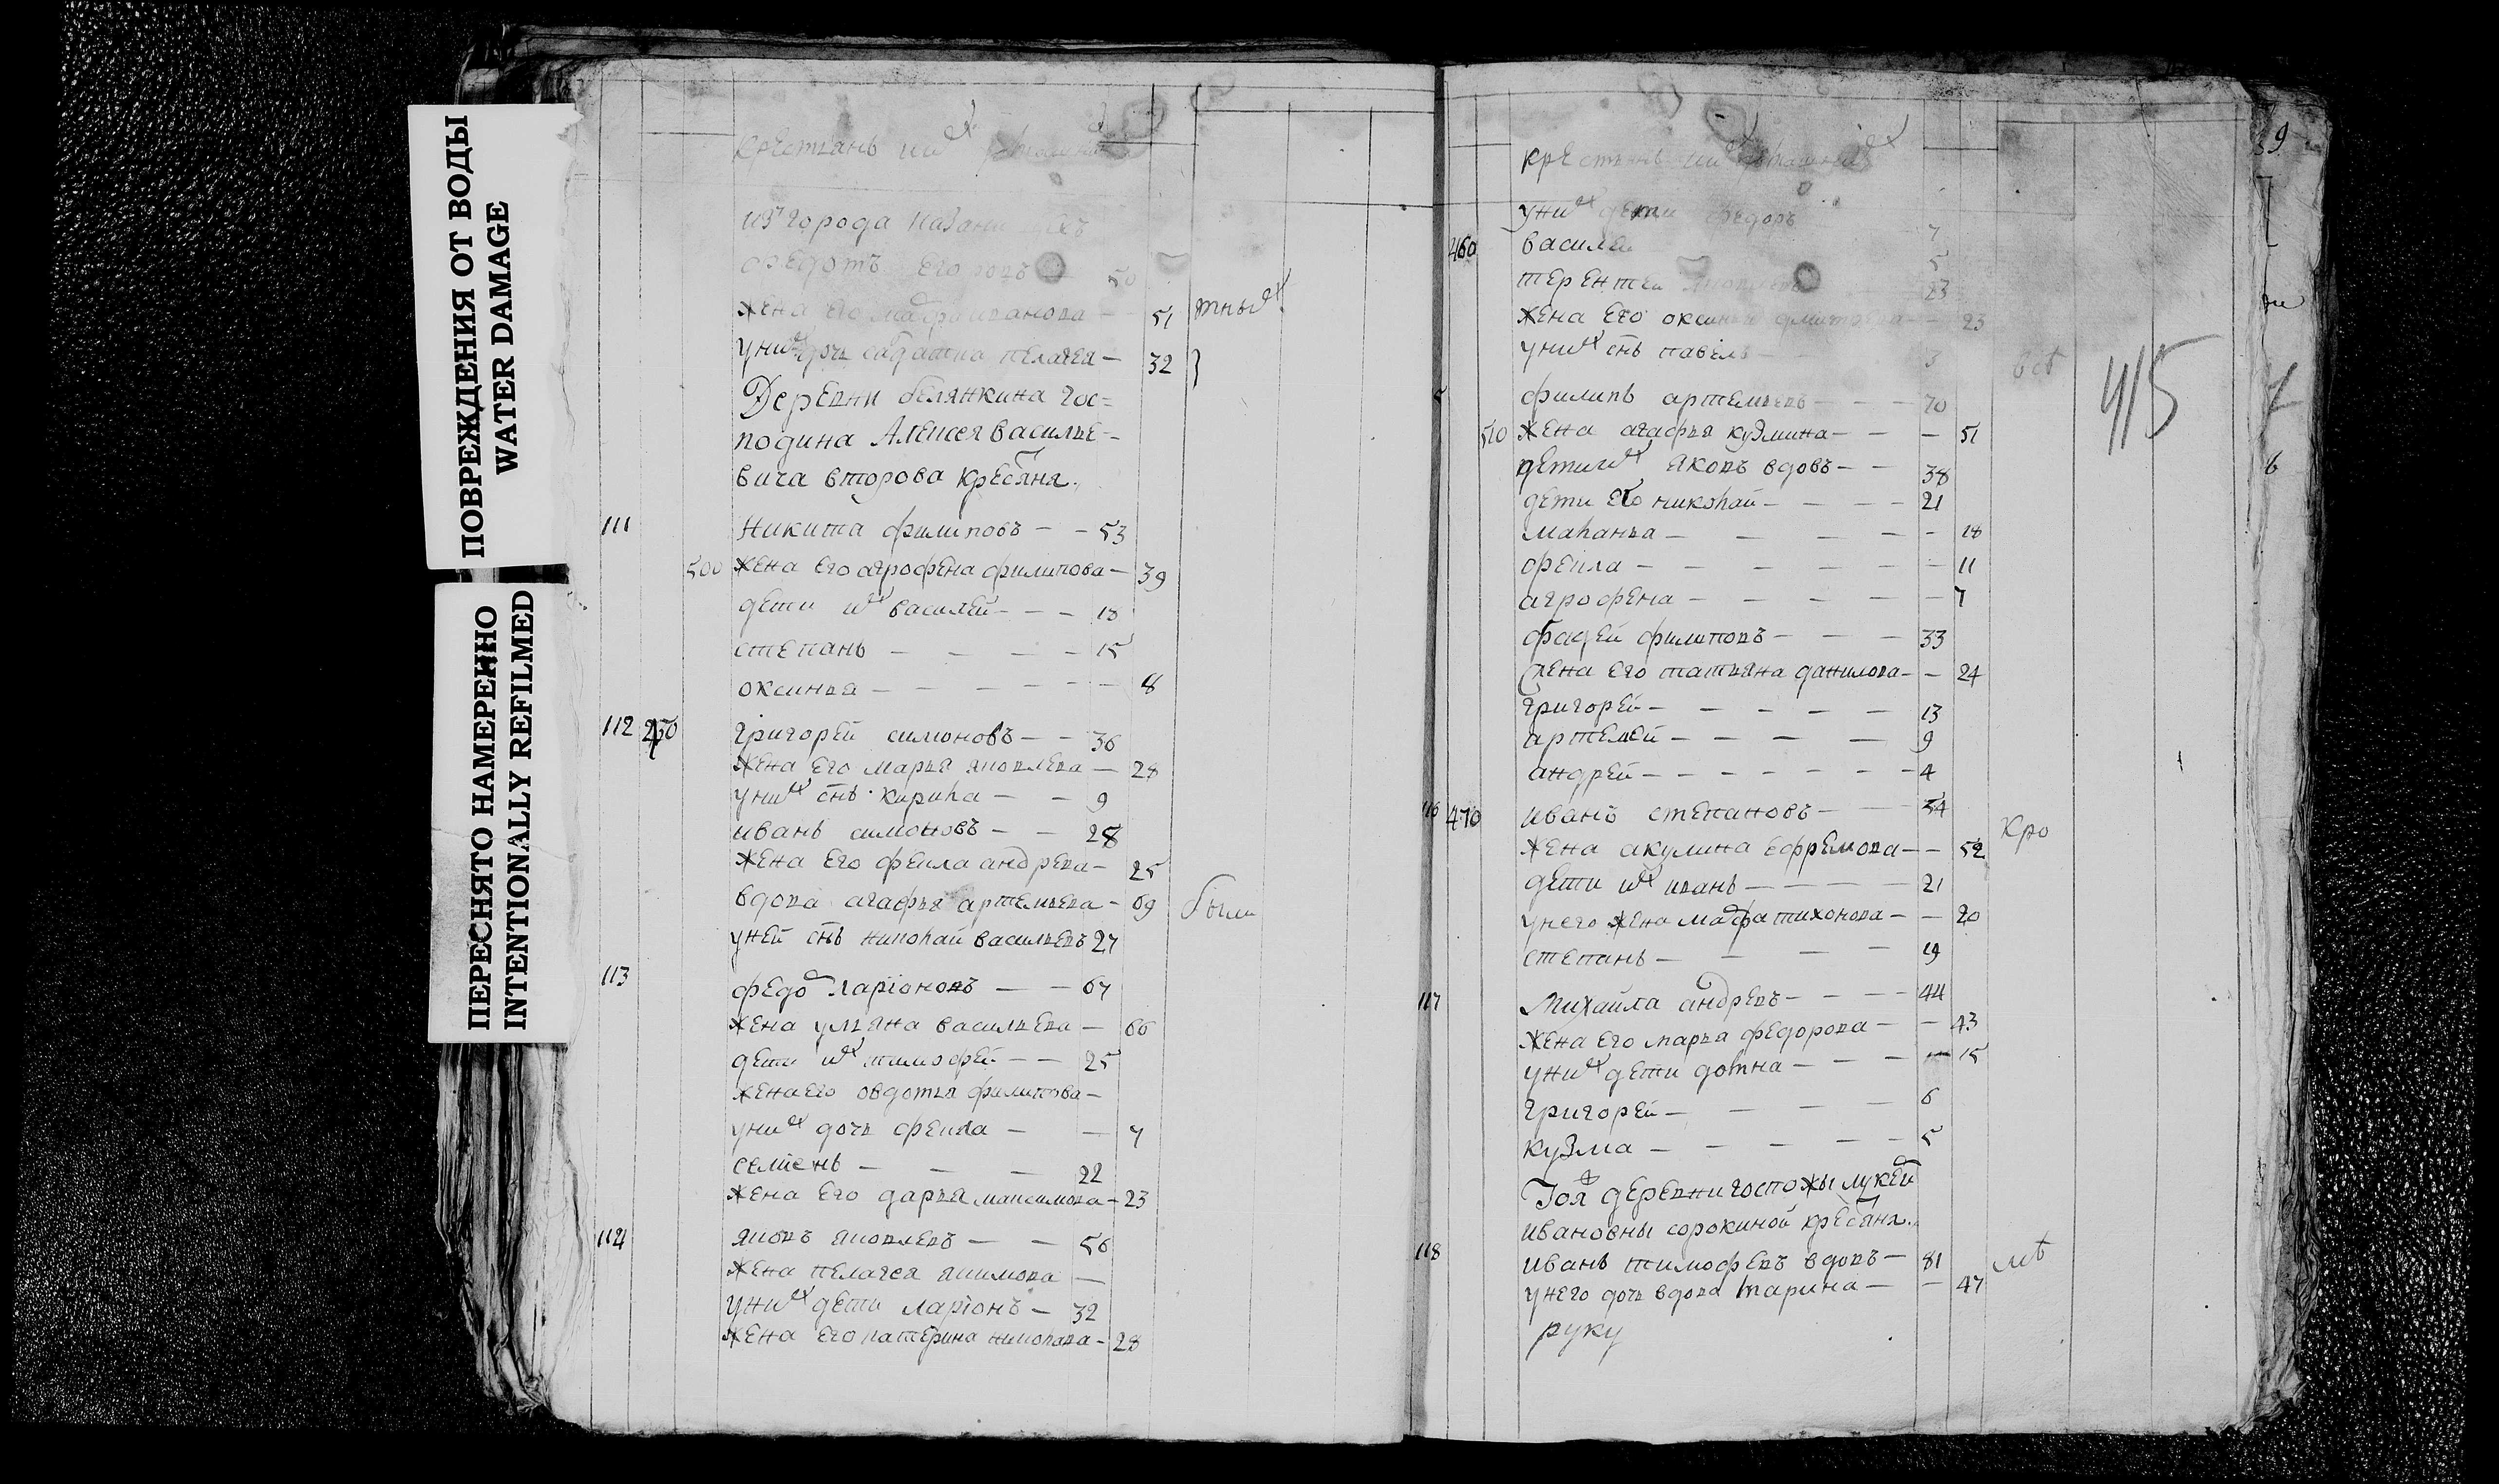 ПОВРЕЖДЕНИЯ ОТ ВОДЫ
WATER DAMAGE
ПЕРЕСНЯТО НАМЕРЕННО
INTENTIONALLY REFILMED
крестьянъ их
изъ города
Федотъ Егоровъ 50
жена его мафра иванова — 51 тных
у них дочь салдатка пелагея — 32
Деревни белянкина гос=
подина Алексея василье=
вича второва кресьяня.
111 Никита филиповъ — — 53
500 жена его агрофена филипова — 39
дети их василей — — — 18
степанъ — — — — 15
оксинья — — — — — — 8
112 450 григорей симоновъ — — 36
жена его марья яковлева — 28
у них снъ кирила — — 9
иванъ симоновъ — — 28
жена его фекла андрева — 25
вдова агафья артемьева — 69 были
у ней снъ николай васильевъ 27
113 федор ларионовъ — — 67
жена ульяна васильева — 66
дети их тимофей — — 25
жена его овдотья филипова —
у них дочь фекла — — 7
семенъ — — — 22
жена его дарья максимова — 23
114 яковъ яковлевъ — — 56
жена пелагея якимова —
у них дети ларионъ — 32
жена его катерина николава — 28
59
крестьянъ их
у них дети федоръ 7
460 василей 5
терентей яковлевъ 23
жена его оксинья дмитрева — — 23
у них снъ павелъ 3 всѣ
415
филипъ артемьевъ — — — 70
510 жена агафья кузмина — — — 51
дети их яковъ вдовъ — — 38
дети его николай — — — — 21
маланья — — — — — — 18
фекла — — — — — — — 11
агрофена — — — — — — 7
фадей филиповъ — — — 33
жена его татьяна данилова — — 24
григорей — — — — — 13
артемей — — — — 9
андрей — — — — — — — 4
116 470 иванъ степановъ — — — 54
жена акулина ефремова — — 52 Кро
дети их иванъ — — — — 21
у него жена мафра тихонова — — 20
степанъ — — — — 19
117 Михайла андревъ — — — — 44
жена его марья федорова — — 43
у них дети домна — — — — 15
григорей — — — — 6
кузма — — — — — 5
Той деревни госпожы лукей
ивановны сорокиной кресьяня.
118 иванъ тимофевъ вдовъ — 81 лѣ
у него дочь вдова марина — — 47
руку